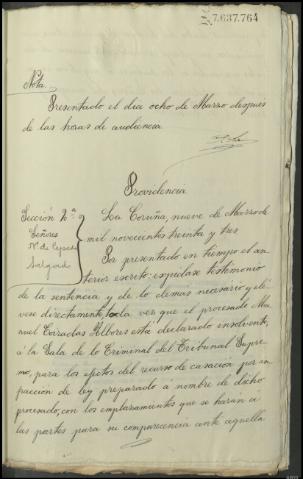 7.637.764
Nota.
Presentado el dia ocho de Marzo despues
de las horas de audiencia
Providencia
Sección 2ª
Señores
Salgado
La Coruña, nueve de Marzo de
mil novecientos treinta y tres
Por presentado en tiempo el an-
terior escrito: expidase testimonio
de la sentencia y de lo demas necesario y elé-
vese directamente, toda vez que el procesado Ma-
nuel Torradas Albores está declarado insolvente,
á la Sala de lo Criminal del Tribunal Supre-
mo, para los efectos del recurso de casación por in-
fracción de ley preparado á nombre de dicho
procesado; con los emplazamientos que se harán á
las partes para su comparecencia ante aquella